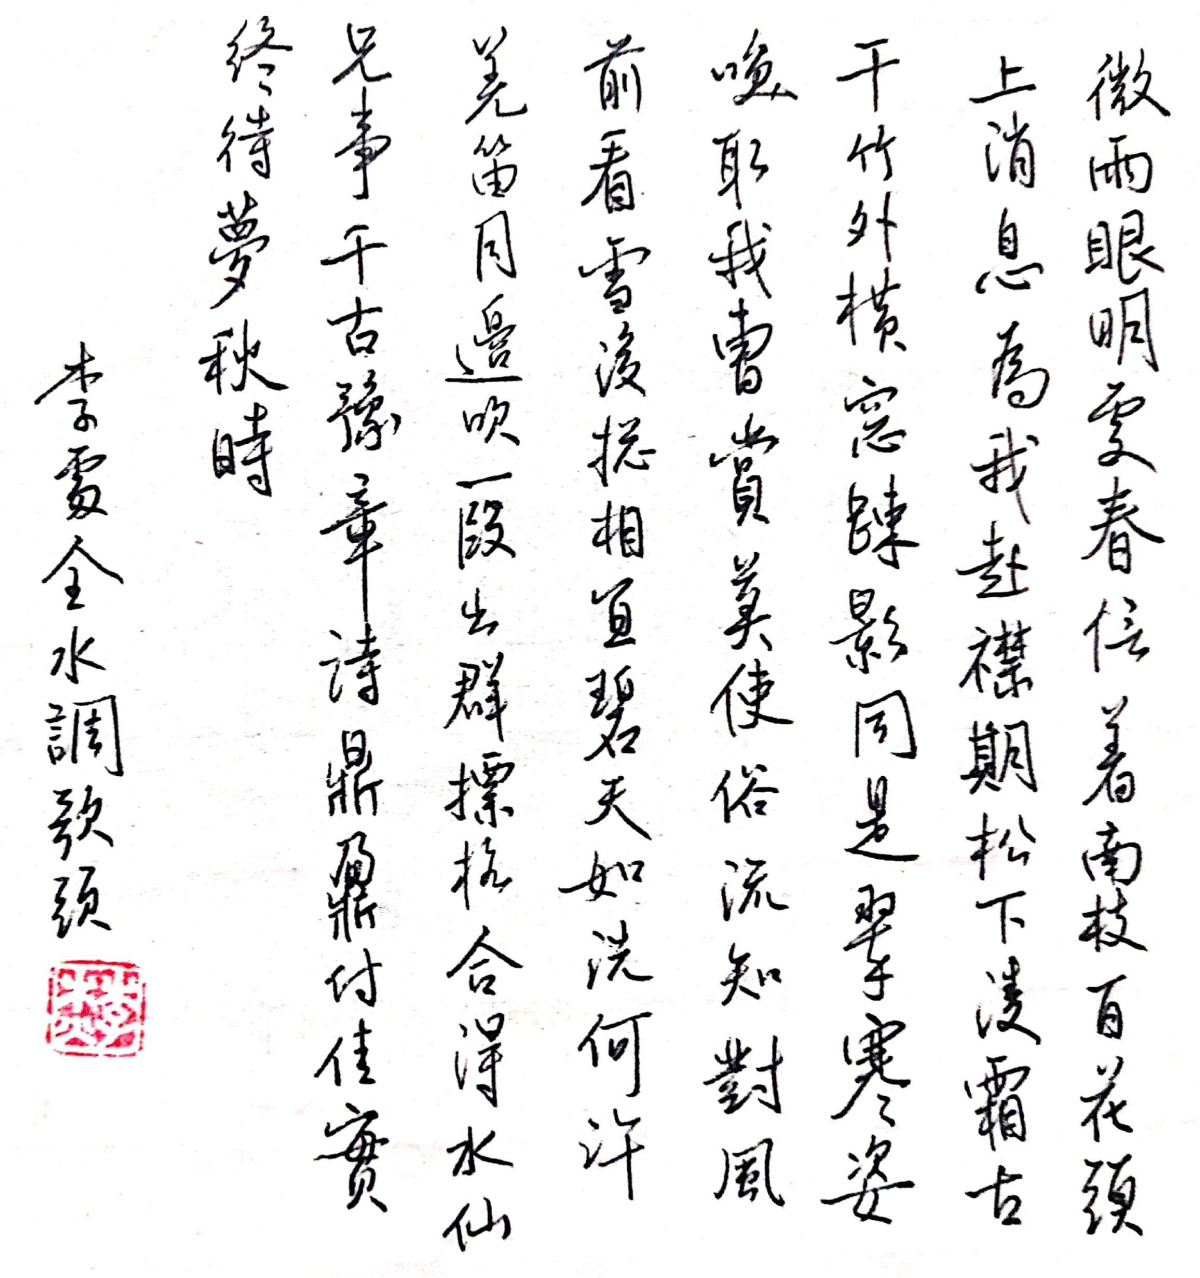 微雨眼明處春信着南枝百花頭
上消息為我赴襟期松下淩霜古
干竹外橫窓踈影同是翠寒姿
喚取我曹賞莫使俗流知對風
前看雪後揔相宜碧天如洗何許
羌笛月邊吹一段出群摽格合得水仙
兄事千古豫章詩鼎鼐付佳實
終待夢秋時
李處全水調歌頭